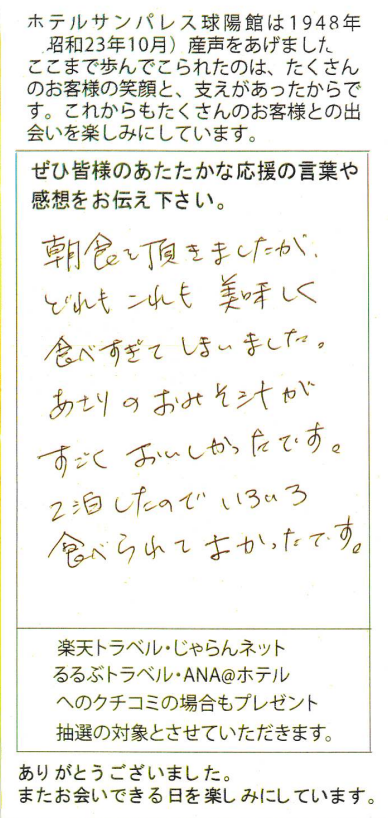 ホテルサンパレス球陽館は1948年
昭和23年10月）産声をあげました
ここまで歩んでこられたのは、たくさん
のお客様の笑顔と、支えがあったからで
す。これからもたくさんのお客様との出
会いを楽しみにしています。
ぜひ皆様のあたたかな応援の言葉や
感想をお伝え下さい。
朝食で頂きましたが、
どれもこれも美味しく
食べすぎてしまいました。
あさりのおみそ汁が
すごくおいしかったです。
2泊したのでいろいろ
食べられてよかったです。
楽天トラベル・じゃらんネット
るるぶトラベル・ANA@ホテル
へのクチコミの場合もプレゼント
抽選の対象とさせていただきます。
ありがとうございました。
またお会いできる日を楽しみにしています。